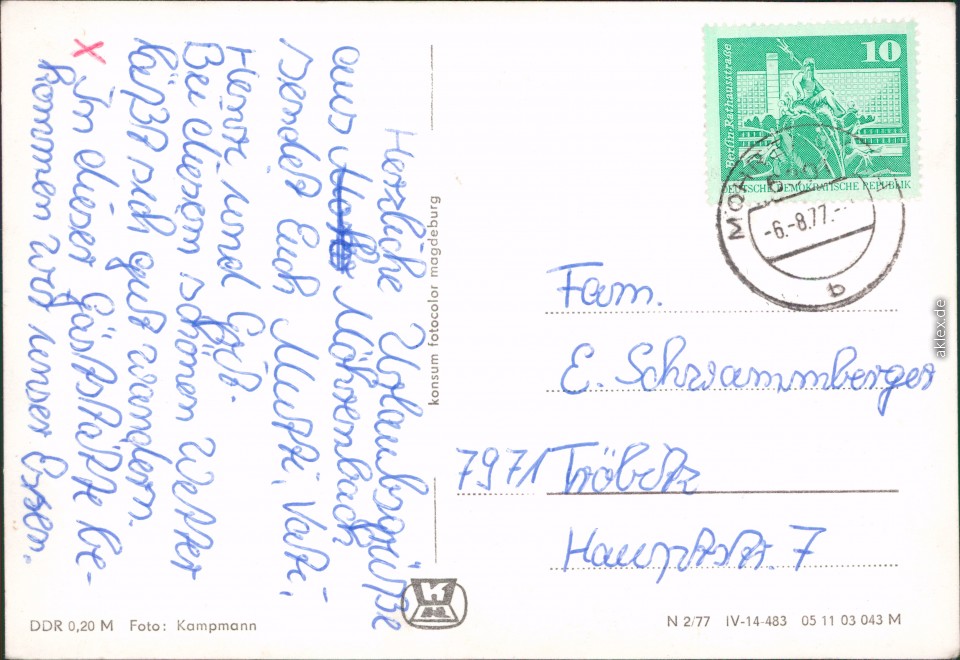 Herzliche Urlaubsgrüße
aus Möhrenbach
sendet Euch Mutti, Vati,
Heinz und Grit.
Bei diesem schönen Wetter
läßt sich gut wandern.
X In dieser Gaststätte be-
kommen wir unser Essen.
konsum fotocolor magdeburg
10
Berlin-Rathausstraße
DEUTSCHE DEMOKRATISCHE REPUBLIK
-6.-8.77.-
b
Fam.
E. Schrammberger
7971 Tröbitz
Hauptstr. 7
DDR 0,20 M Foto: Kampmann
N 2/77 IV-14-483 05 11 03 043 M
aklex.de